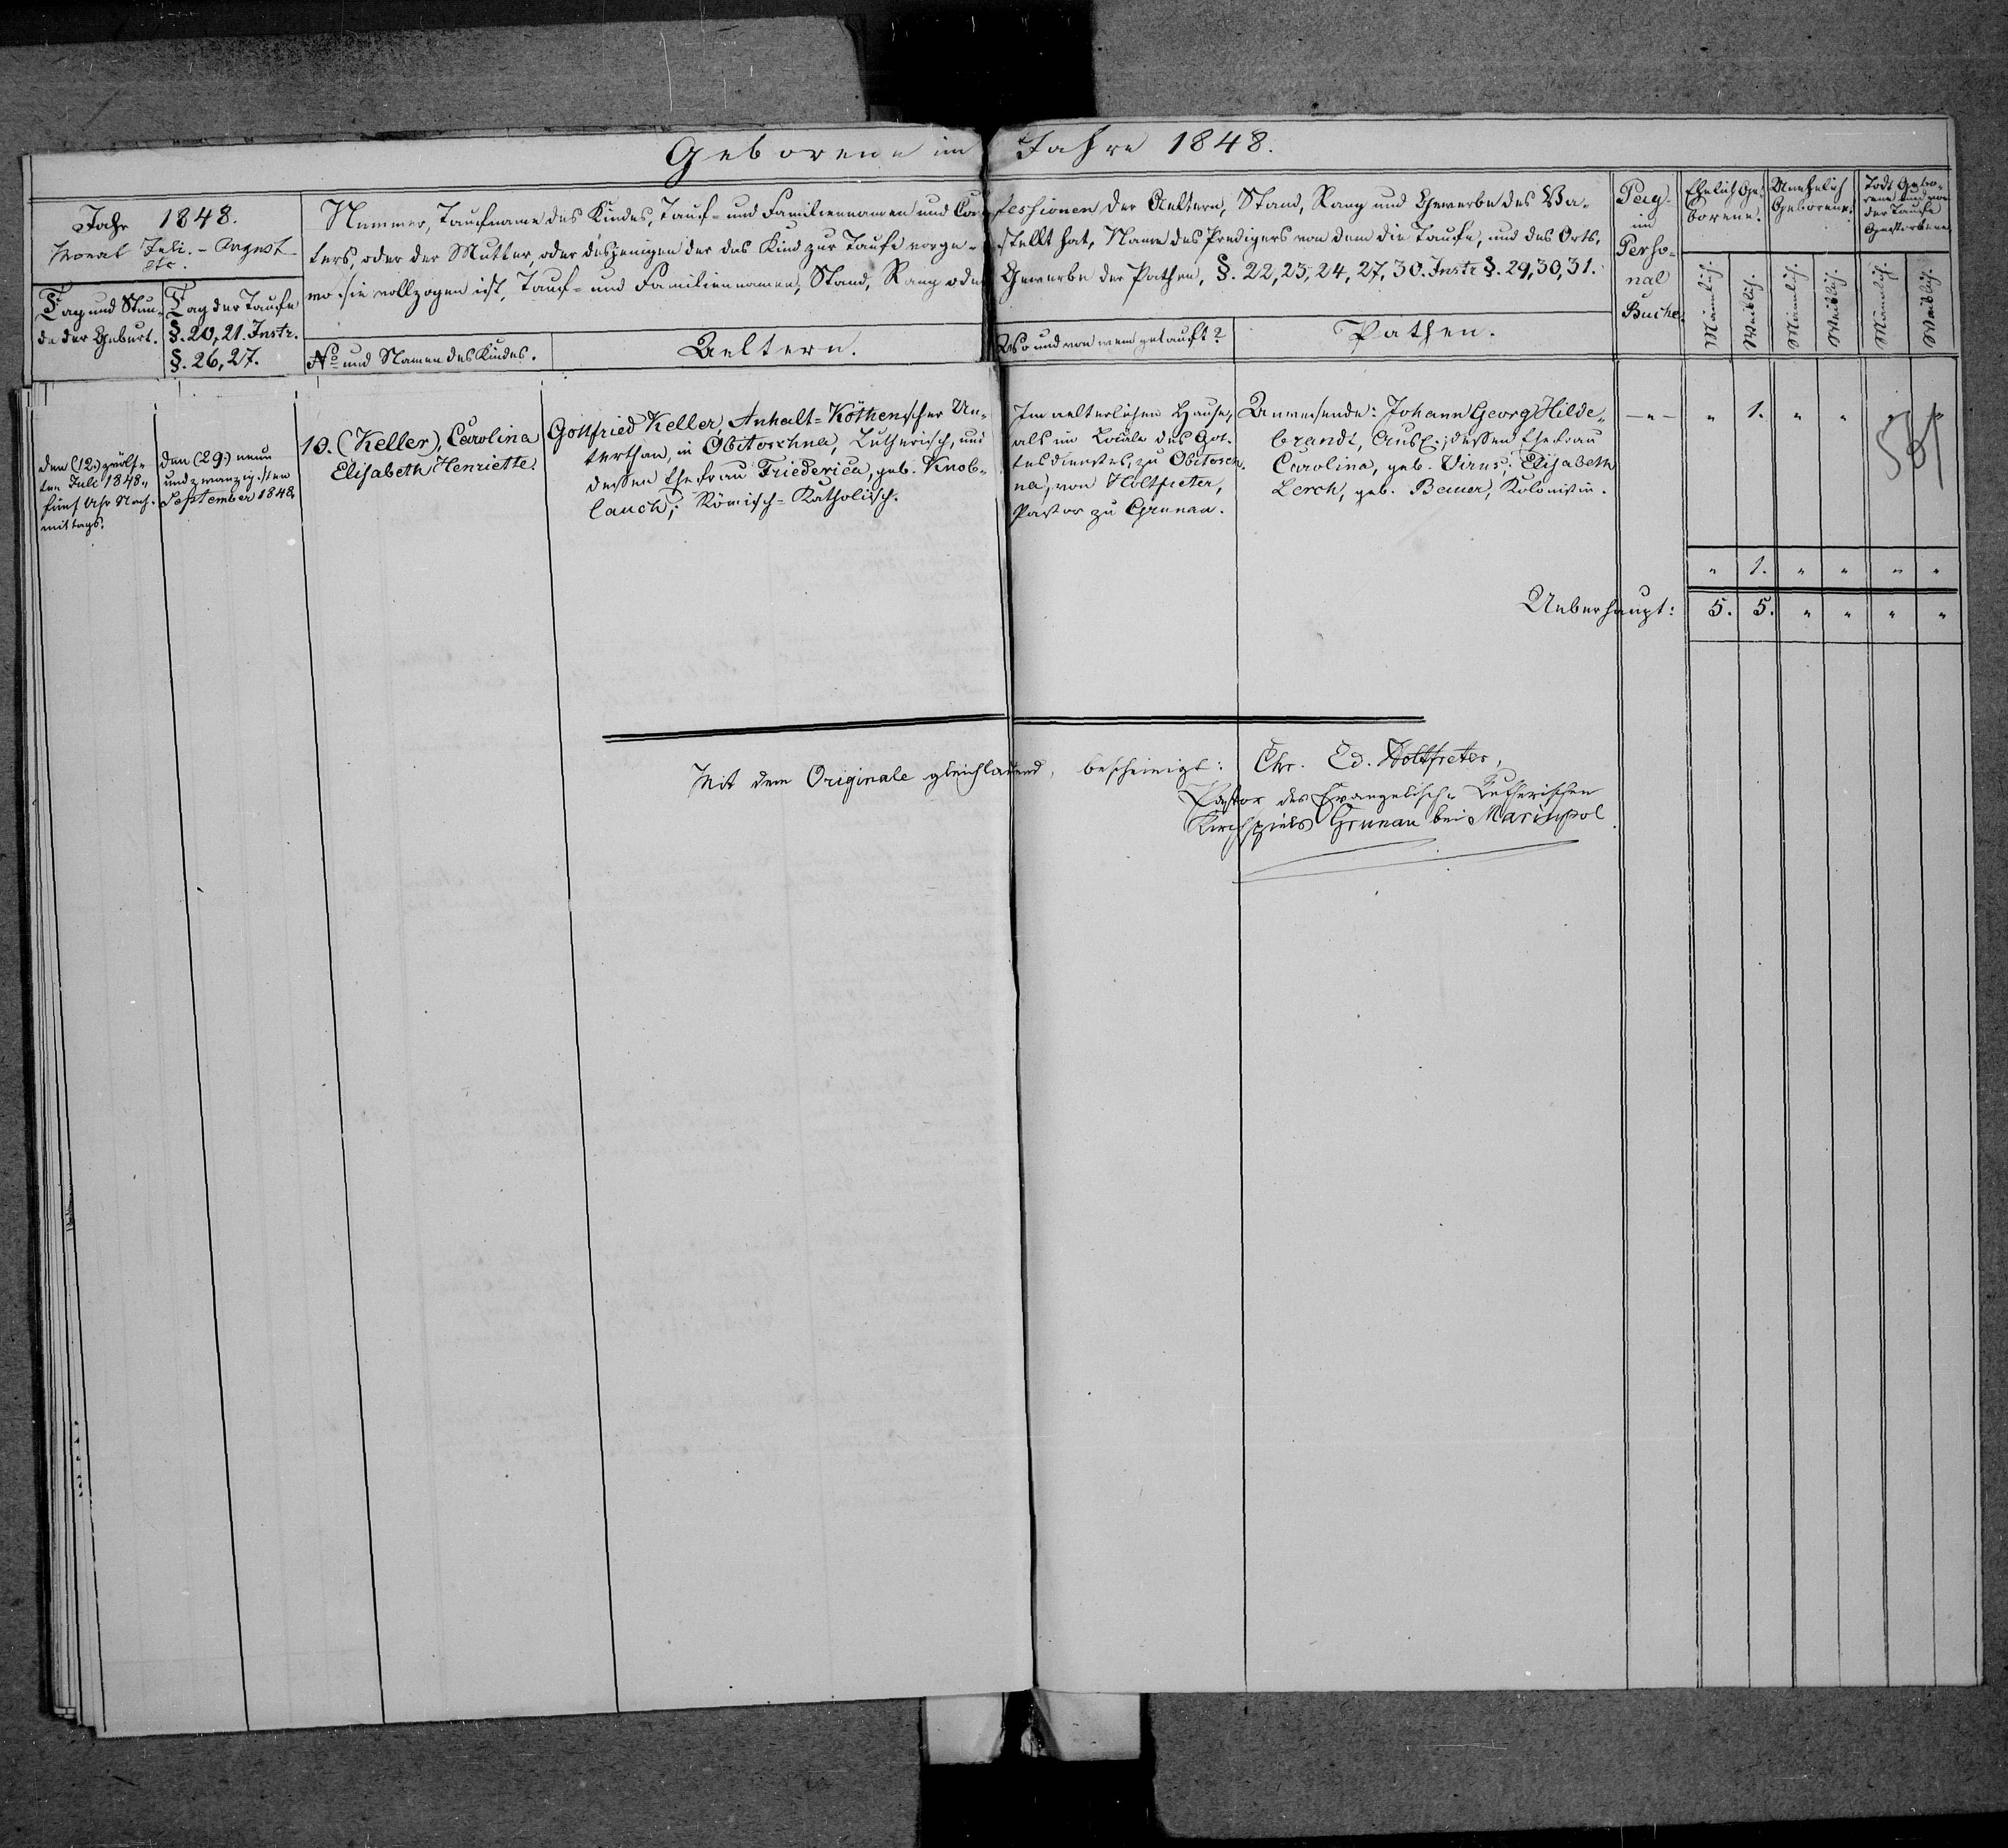 Geborene im Jahre 1848.
Jahr 1848.
Monat Juli. - August
etc.
Tag und Stun-
de der Geburt.
Tag der Taufe
§. 20, 21. Instr.
§. 26, 27.
Nummer, Taufname des Kindes, Tauf- und Familiennamen und Con-fessionen der Aeltern, Stand, Rang und Gewerbe des Va-
ters, oder der Mutter, oder desjenigen der das Kind zur Taufe vorge-stellt hat, Name des Predigers von dem die Taufe, und des Orts,
wo sie vollzogen ist, Tauf- und Familiennamen, Stand, Rang oder Gewerbe der Pathen, §. 22, 23, 24, 27, 30. Instr. §. 29, 30, 31.
No und Namen des Kindes.
Aeltern.
Wo und von wem getauft?
Pathen.
Pag.
im
Perso-
nal
Buche.
Ehelich Ge-
borene.
Unehelich
Geborene.
Todt Gebo-
rene und vor
der Taufe
Gestorbene.
Männlich.
Weiblich.
Männlich.
Weiblich.
Männlich.
Weiblich.
den (12.) zwölf-
ten Juli 1848.
fünf Uhr Nach-
mittags.
den (29.) neun
und zwanzigsten
September 1848.
10. (Keller), Carolina
Elisabeth Henriette.
Gottfried Keller, Anhalt-Köthenscher Un-
terthan, in Obitoschna, Lutherisch, und
dessen Ehefrau Friederica, geb. Knob-
lauch; Römisch-Katholisch.
Im aelterlichen Hause,
als im Locale des Got-
tesdienstes, zu Obitosch-
na, von Holtfreter,
Pastor zu Grunau.
Anwesende: Johann Georg Hilde-
brandt, dessen Ehefrau
Carolina, geb. Elisabeth
Lerch, geb. Bauer, Kolonistin.
-"- " 1. " " "
" 1. " " " "
Ueberhaupt: 5. 5. " " " "
Mit dem Originale gleichlautend, bescheinigt: Chr. Ed. Holtfreter,
Pastor des Evangelisch-Lutherischen
Kirchspiels Grunau bei Mariupol.